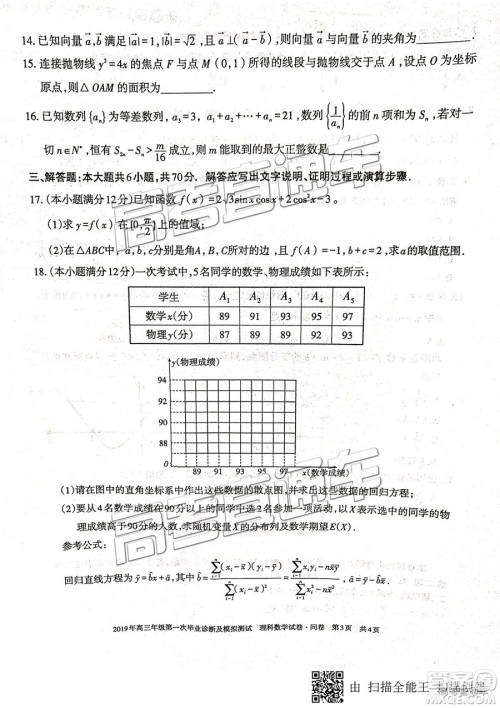 14.已知向量 a⃗,b⃗ 满足|a⃗|=1,|b⃗|=√2,且 a⃗⊥(a⃗-b⃗),则向量 a⃗ 与向量 b⃗ 的夹角为________.
15.连接抛物线 y²=4x 的焦点 F 与点 M(0,1)所得的线段与抛物线交于点 A,设点 O 为坐标
原点,则△OAM 的面积为________.
16.已知数列{aₙ}为等差数列,a₃=3,a₁+a₂+⋯+a₆=21,数列{1/aₙ}的前 n 项和为 Sₙ,若对一
切 n∈N*,恒有 S₂ₙ-Sₙ>m/16 成立,则 m 能取到的最大正整数是________.
三、解答题:本大题共6小题,共70分. 解答应写出文字说明、证明过程或演算步骤.
17.(本小题满分12分)已知函数 f(x)=2√3sinxcosx+2cos²x。
(1)求 y=f(x)在[0,π/2]上的值域;
(2)在△ABC中,a,b,c分别是角A,B,C的对边,若
-1,b+c=2,求a的取值范围.
18.(本小题满分12分)一次考试中,5名同学的数学、物理成绩如下表所示:
学生 A₁ A₂ A₃ A₄ A₅
数学x(分) 89 91 93 95 97
物理y(分) 87 89 89 92 93
y(物理成绩)
94
92
90
88
89 91 93 95 97
x(数学成绩)
(1)请在图中的直角坐标系中作出这些数据的散点图,并求出这些数据的回归方程;
(2)要从4名数学成绩在90分以上的同学中选2名参加一项活动,以X表示选中的同学的物
理成绩高于90分的人数,求随机变量 X 的分布列及数学期望 E(X).
参考公式:
回归直线方程为 ŷ=b̂x+â,其中 b̂=∑(xᵢ-x̄)(yᵢ-ȳ)/∑(xᵢ-x̄)²=∑xᵢyᵢ-nx̄ȳ/∑xᵢ²-nx̄²,â=ȳ-b̂x̄.
2019年高三年级第一次毕业诊断及模拟测试 理科数学试卷·问卷 第3页 共4页
高考直通车
由 扫描全能王